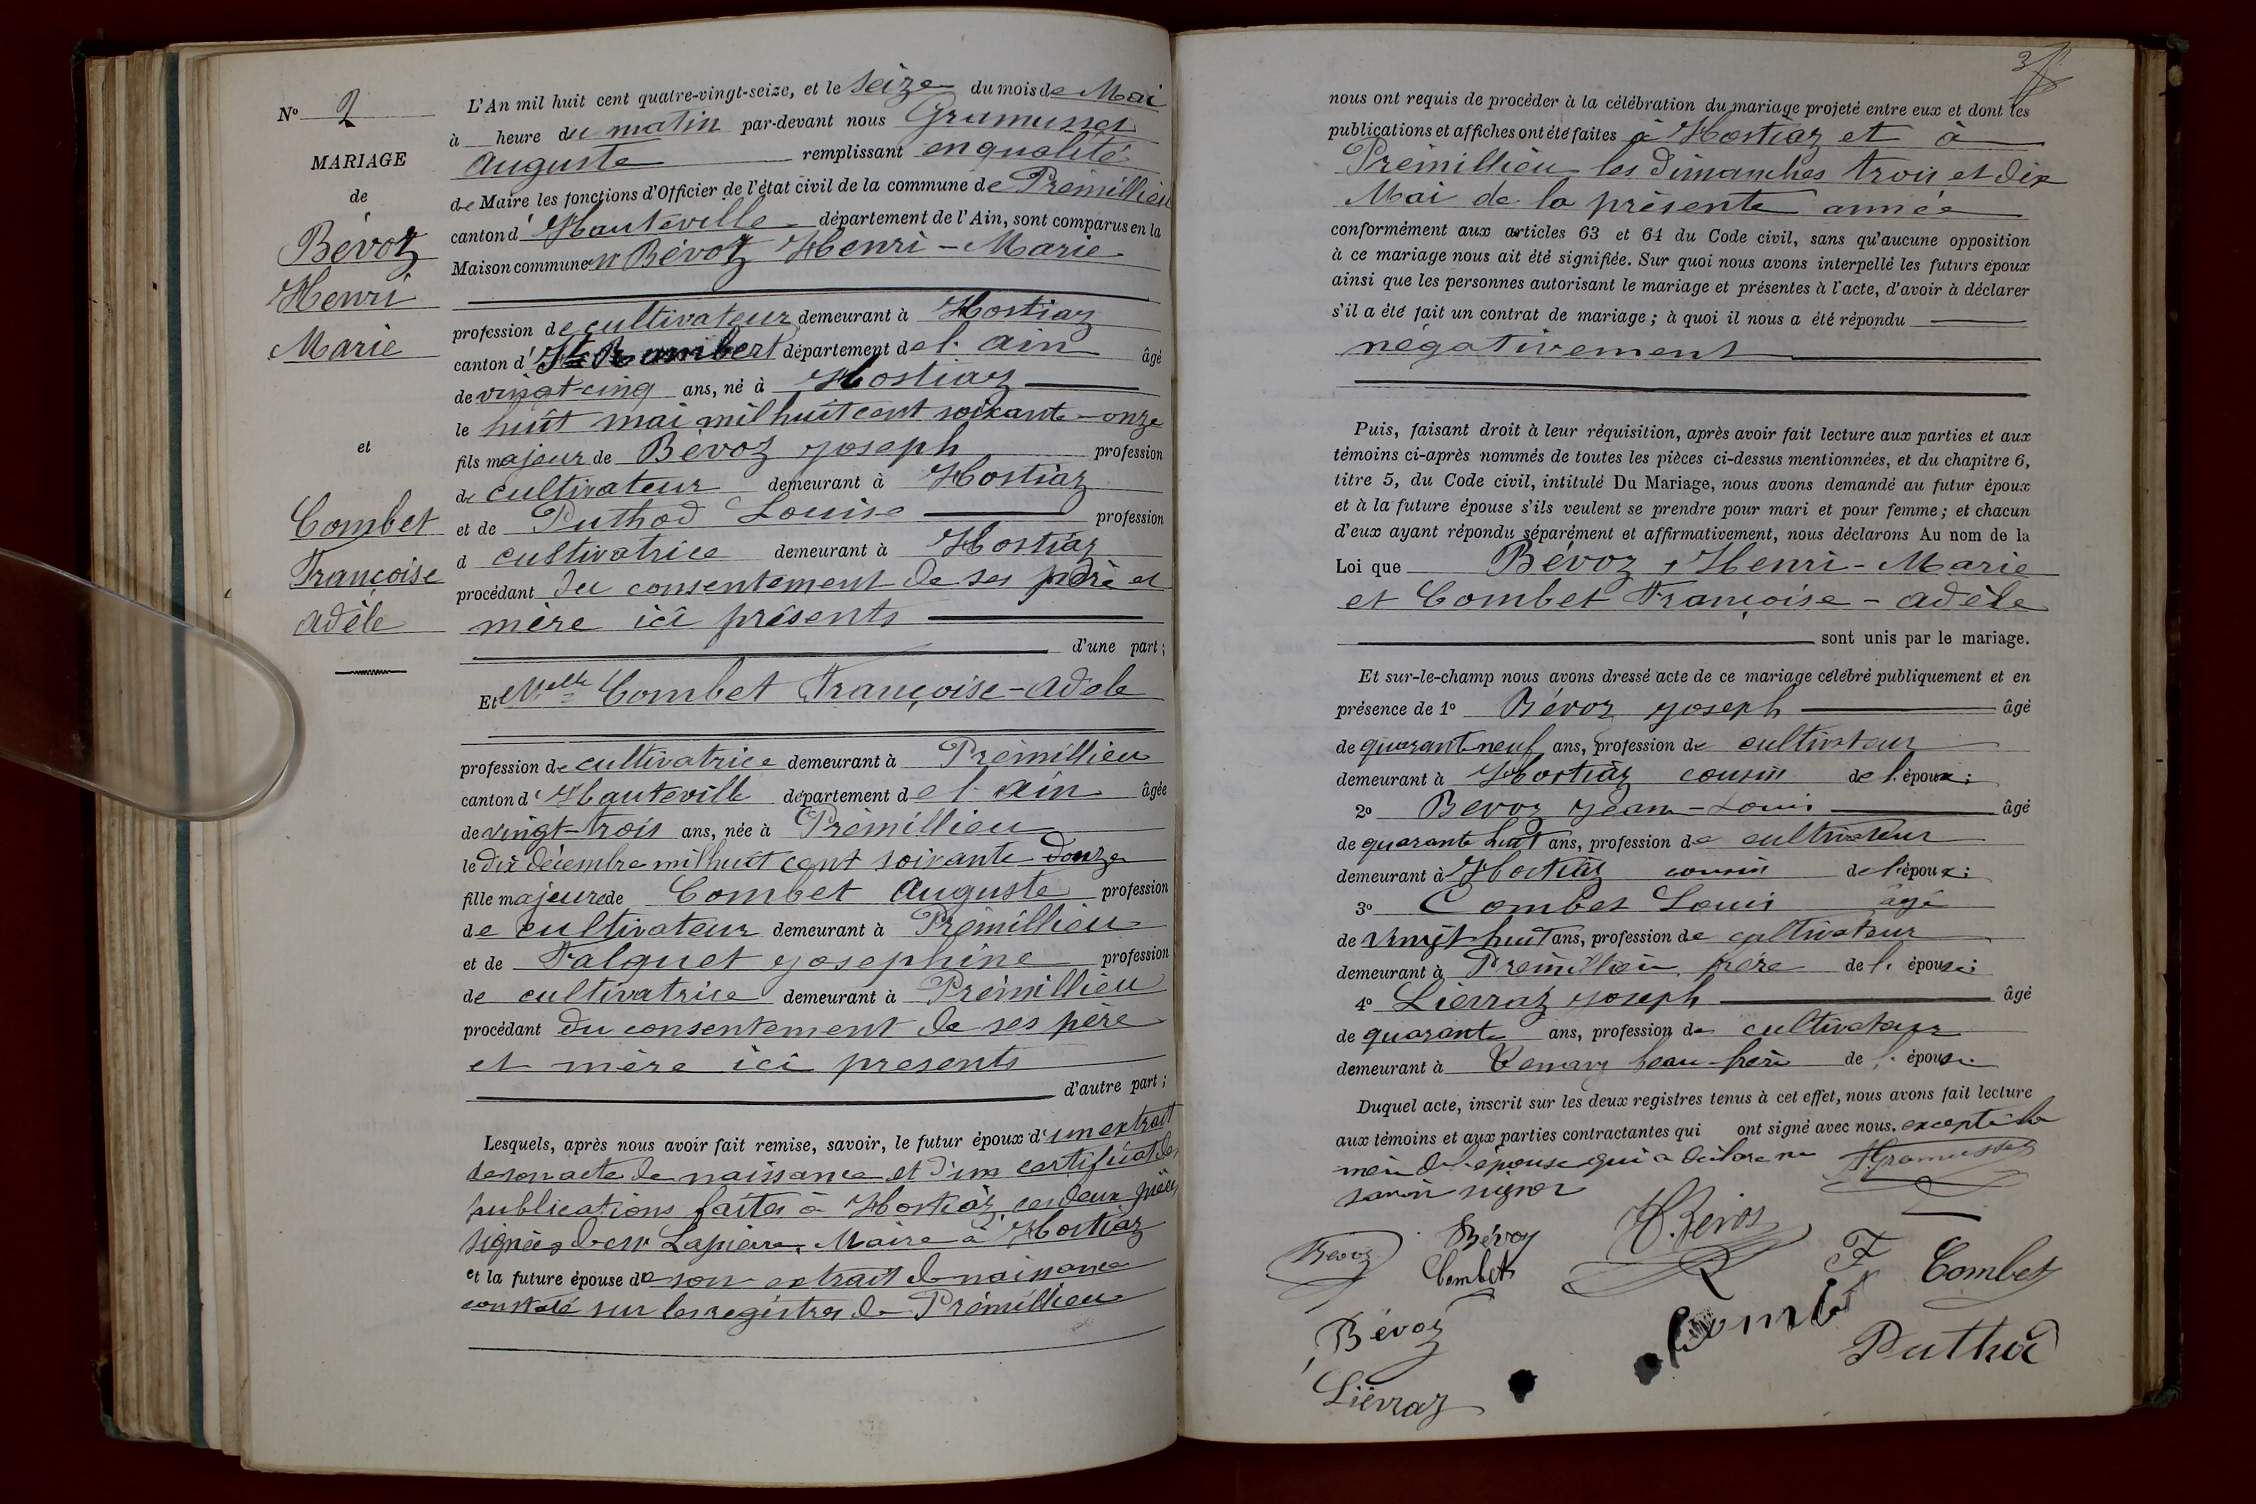 Nº 2
MARIAGE
de
Bévoz
Henri
Marie
et
Combet
Françoise
Adèle
L'An mil huit cent quatre-vingt-seize, et le seize du mois de Mai
à heure du matin par-devant nous Gramusset
Auguste remplissant en qualité
de Maire les fonctions d'Officier de l'état civil de la commune de Prémillieu
canton d' Hauteville département de l'Ain, sont comparus en la
Maison commune Mr Bévoz Henri - Marie
profession de cultivateur demeurant à Hostiaz
canton d' St Rambert département de l'Ain âgé
de vingt-cinq ans, né à Hostiaz
le huit mai mil huit cent soixante-onze
fils majeur de Bévoz Joseph profession
de cultivateur demeurant à Hostiaz
et de Puthod Louise profession
d cultivatrice demeurant à Hostiaz
procédant du consentement de ses père et
mère ici présents
d'une part;
Et Melle Combet Françoise-Adèle
profession de cultivatrice demeurant à Prémillieu
canton d' Hauteville département de l'Ain âgée
de vingt-trois ans, née à Prémillieu
le dix décembre mil huit cent soixante douze
fille majeure de Combet Auguste profession
de cultivateur demeurant à Prémillieu
et de Falquet Joséphine profession
de cultivatrice demeurant à Prémillieu
procédant du consentement de ses père
et mère ici présents
d'autre part;
Lesquels, après nous avoir fait remise, savoir, le futur époux d'un extrait
de son acte de naissance et d'un certificat des
publications faites à Hostiaz, ces deux pièces
signées de Mr Lapierre, Maire à Hostiaz
et la future épouse de son extrait de naissance
constaté sur les registres de Prémillieu
nous ont requis de procéder à la célébration du mariage projeté entre eux et dont les
publications et affiches ont été faites à Hostiaz et à
Prémillieu les dimanches trois et dix
Mai de la présente année
conformément aux articles 63 et 64 du Code civil, sans qu'aucune opposition
à ce mariage nous ait été signifiée. Sur quoi nous avons interpellé les futurs époux
ainsi que les personnes autorisant le mariage et présentes à l'acte, d'avoir à déclarer
s'il a été fait un contrat de mariage; à quoi il nous a été répondu
négativement
Puis, faisant droit à leur réquisition, après avoir fait lecture aux parties et aux
témoins ci-après nommés de toutes les pièces ci-dessus mentionnées, et du chapitre 6,
titre 5, du Code civil, intitulé Du Mariage, nous avons demandé au futur époux
et à la future épouse s'ils veulent se prendre pour mari et pour femme; et chacun
d'eux ayant répondu séparément et affirmativement, nous déclarons Au nom de la
Loi que Bévoz, Henri-Marie
et Combet Françoise-Adèle
sont unis par le mariage.
Et sur-le-champ nous avons dressé acte de ce mariage célébré publiquement et en
présence de 1º Bévoz Joseph âgé
de quarante neuf ans, profession de cultivateur
demeurant à Hostiaz cousin de l'époux;
2º Bevoz Jean-Louis âgé
de quarante huit ans, profession de cultivateur
demeurant à Hostiaz cousin de l'époux;
3º Combet Louis âgé
de vingt huit ans, profession de cultivateur
demeurant à Prémillieu frère de l'épouse;
4º Liévraz Joseph âgé
de quarante ans, profession de cultivateur
demeurant à beau-frère de l'épouse
Duquel acte, inscrit sur les deux registres tenus à cet effet, nous avons fait lecture
aux témoins et aux parties contractantes qui ont signé avec nous, excepté la
mère de l'épouse qui a déclaré ne Gramusset
savoir signer
Bevoz Bévoz H. Bévoz
Combet F Combet
Bévoz Combet
Puthod
Liévraz